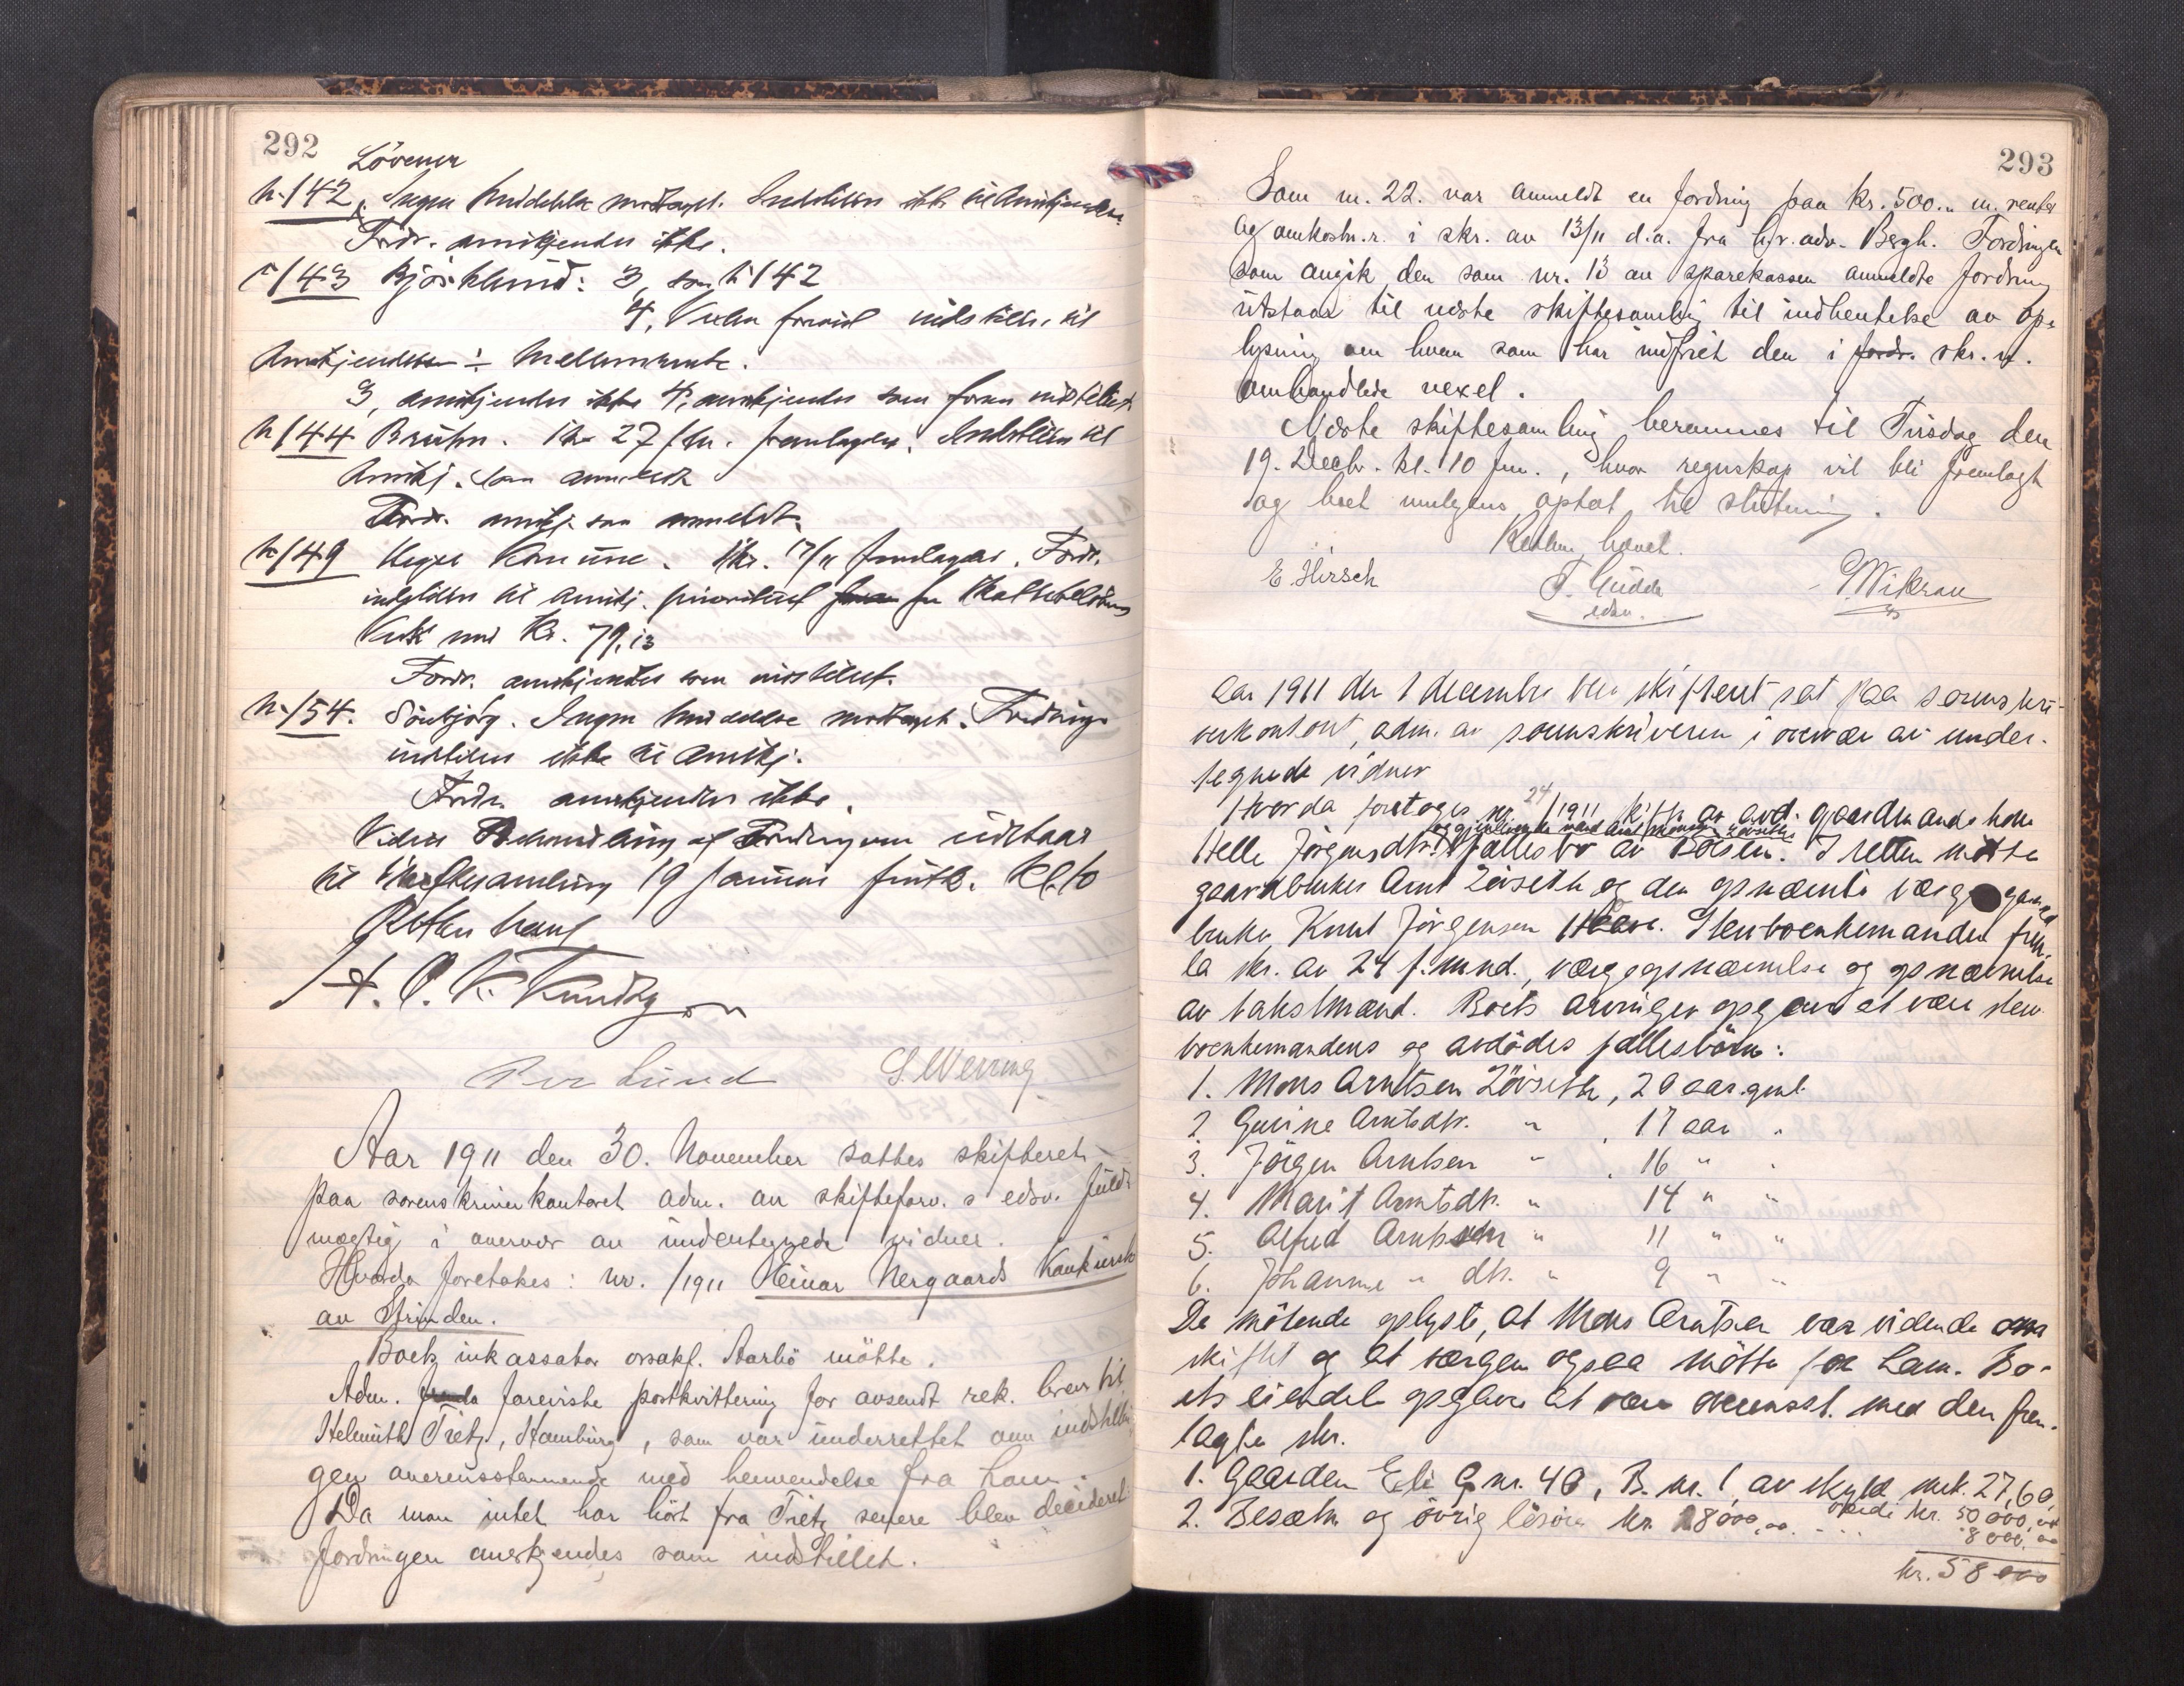 292
Lövener
N. 142. Ingen Meddelelse modtaget. Indstilles ikke til Anerkjendelse.
Fordr. anerkjendes ikke.
n 143 Björklund: 3, som N 142
4, Vexlen forsaavidt indstilles til
Anerkjendelse ÷ Mellemrente.
3, anerkjendes ikke 4, anerkjendes som foran indstillet
N 144 Bruhn. Skr 27/ fremlagdes. Indstilles til
Anerkj. som anmeldt
Fordr. anerkj. som anmeldt.
N 149 Kommune. Skr. 17/11 fremlagdes. Fordr.
indstilles til anerkj. prioriteret for Skattebeløbets
Vedk med Kr. 79,13
Fordr. anerkjendes som indstillet.
N. 154. Sönbjörg. Ingen Meddelelse modtaget. Fordringen
indstilles ikke til Anerkj.
Fordr. anerkjendes ikke.
Videre Behandling af Fordringerne udstaar
til Skiftesamling 19 Januar førstk. Kl. 10
Retten hævet
Per Lund S. Werring
Aar 1911 den 30. November sattes skifteret
paa sorenskriverkontoret adm. av skifteforv. s edsv. fuld-
mægtig i overvær av undertegnede vidner.
Hvorda foretokes: nr. /1911 Einar Nergaards Konkursbo
av Strinden.
Boets inkassator orsakf. Aarbö mötte.
Adm. foreviste postkvittering for avsendt rek. brev til
Helmuth Tietz, Hamburg, som var underrettet om indstillin-
gen overensstemmende med henvendelse fra ham.
Da man intet har hört fra Tietz senere blev decideret
Fordringen anerkjendes som indstillet.
293
Som nr. 22. var anmeldt en fordring paa kr. 500.. m. renter
og omkostn.r. i skr. av 13/11 d.a. fra h.r.adv. Bergh. Fordringen
som angik den som nr. 13 av sparekassen anmeldte fordring
utstaar til næste skiftesamling til indhentelse av op-
lysning om hvem som har indfriet den i fordr. skr. n.
omhandlede vexel.
Næste skiftesamling berammes til Tirsdag den
19. Decbr. kl. 10 fm., hvor regnskap vil bli fremlagt
og boet muligens optat til slutning.
Retten hævet.
E Hirsch
edsv.
Aar 1911 den 1 december blev skifteret sat paa sorenskri-
verkontoret, adm. av sorenskriveren i overvær av under-
tegnede vidner
Hvorda foretoges nr 24/1911 Skifte av avd. gaardmands kone
og gjenlevende mand Arnt Monsen Löiseths
Helle Jörgensdtr. fællesbo av Börsen. I retten mötte
gaardbruker Arnt Löiseth og den opnævnte værge gaard
bruker Knut Jörgensen. Enboenkemanden frem
la skr. av 24 f. mnd., værgeopnævnelse og opnævnelse
av takstmænd. Boets arvinger opgaves at være sten
boenkemandens og avdödes fællesbörn:
1. Mons Arntsen Löiseth, 20 aar. gml.
2. Gurine Arntsdtr. " , 17 aar "
3. Jörgen Arntsen " , 16 " "
4. Marit Arntsdtr. " 14 " "
5. Alfred Arntsen " 11 " "
6. Johanne " dtr. " 9 " "
De mötende oplyste, at Mons Arntsen var vidende om
skiftet og at værgen ogsaa mötte for ham. Bo-
ets eiendele opgaves at være overensst. med den frem-
lagte skr.
1. Gaarden Eli G.nr. 40, B. nr. 1, av skyld mrk. 27,60,
værdi kr. 50 000,00
2. Besætn. og övrig lösöre kr. 8000,00. . . . 8 000,00
kr. 58 000